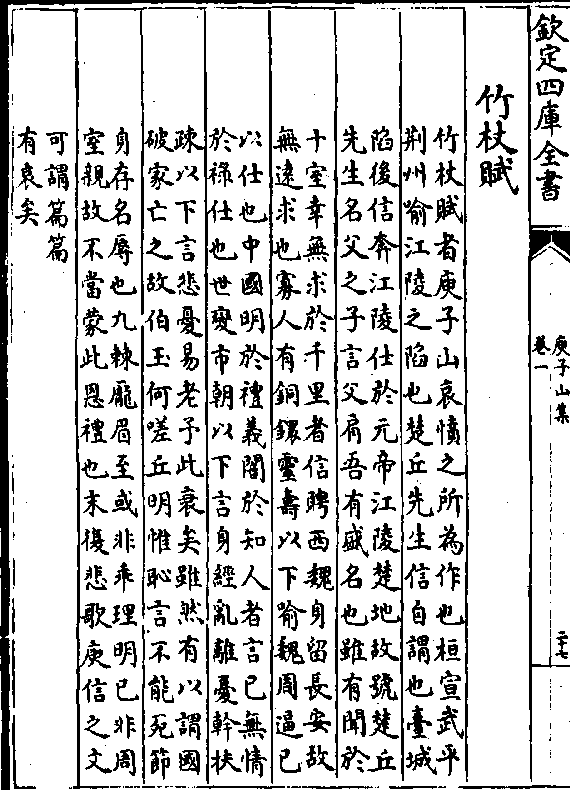 欽定四庫全書
庾子山集
卷一
二十七
竹杖賦
竹杖賦者庾子山哀憤之所為作也桓宣武平
荆州喻江陵之陷也楚丘先生信自謂也臺城
陷後信奔江陵仕於元帝江陵楚地故號楚丘
先生名父之子言父肩吾有盛名也雖有聞於
十室幸無求於千里者信聘西魏身留長安故
無遠求也寡人有銅鐶靈壽以下喻魏周逼已
以仕也中國明於禮義闇於知人者言已無情
於祿仕也世變市朝以下言身經亂離憂幹扶
疎以下言悲憂易老予此衰矣雖然有以謂國
破家亡之故伯玉何嗟丘明惟恥言不能死節
身存名辱也九棘龎眉至或非乖理明已非周
室親故不當蒙此恩禮也末復悲歌庾信之文
可謂篇篇
有哀矣